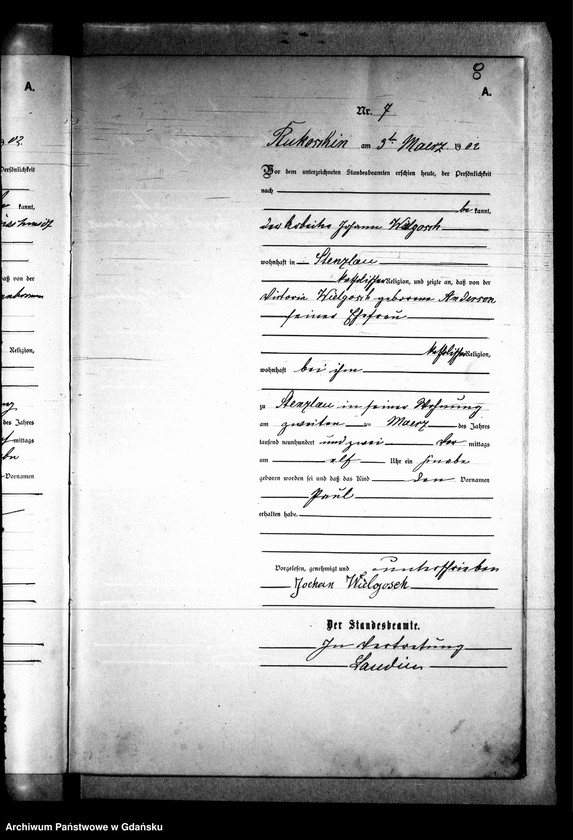 8
A.
A.
Nr. 7
1902
Rukoschin am 3ten Maerz 1902
Persönlichkeit
Vor dem unterzeichneten Standesbeamten erschien heute, der Persönlichkeit
nach
kannt,
be kannt,
der Arbeiter Johann Wielgosch
wohnhaft in Stenzlau
katholischer Religion, und zeigte an, daß von der
daß von der
Victoria Wielgosch geborene Anderson
seiner Ehefrau
Religion,
katholischer Religion,
wohnhaft bei ihm
zu Stenzlau in seiner Wohnung
des Jahres
am zweiten Maerz des Jahres
mittags
tausend neunhundert und zwei Vor mittags
um elf Uhr ein Knabe
Vornamen
geboren worden sei und daß das Kind den Vornamen
Paul
erhalten habe.
Vorgelesen, genehmigt und unterschrieben
Johann Wielgosch
Der Standesbeamte.
In Vertretung
Archiwum Państwowe w Gdańsku